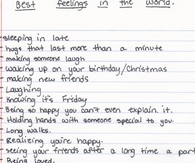 Best feelings in the world.
sleeping in late
hugs that last more than a minute
making someone laugh
waking up on your birthday/Christmas
making new friends
Laughing
Knowing it's Friday
Being so happy you can't even explain it.
Holding hands with someone special to you.
Long walks.
Realizing you're happy.
seeing your friends after a long time a part
Being loved.